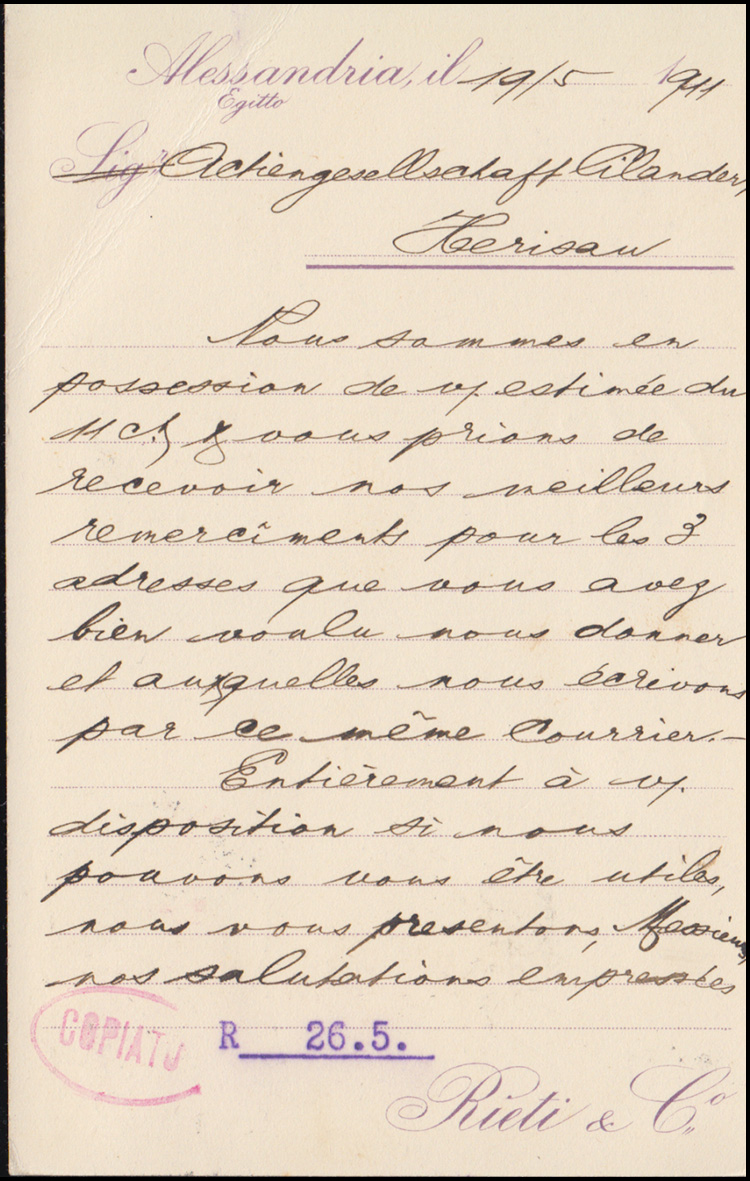 Alessandria, il 19/5 1911
Egitto
Sigr Actiengesellschaft Cilander,
Herisau
Nous sommes en
possession de v/. estimée du
11 ct. & vous prions de
recevoir nos meilleurs
remercîments pour les 3
adresses que vous avez
bien voulu nous donner
et auxquelles nous écrivons
par ce même Courrier.—
Entièrement à v/.
disposition si nous
pouvons vous être utiles,
nous vous presentons, Messieurs,
nos salutations empressées
COPIATO
R 26.5.
Rieti & Co.